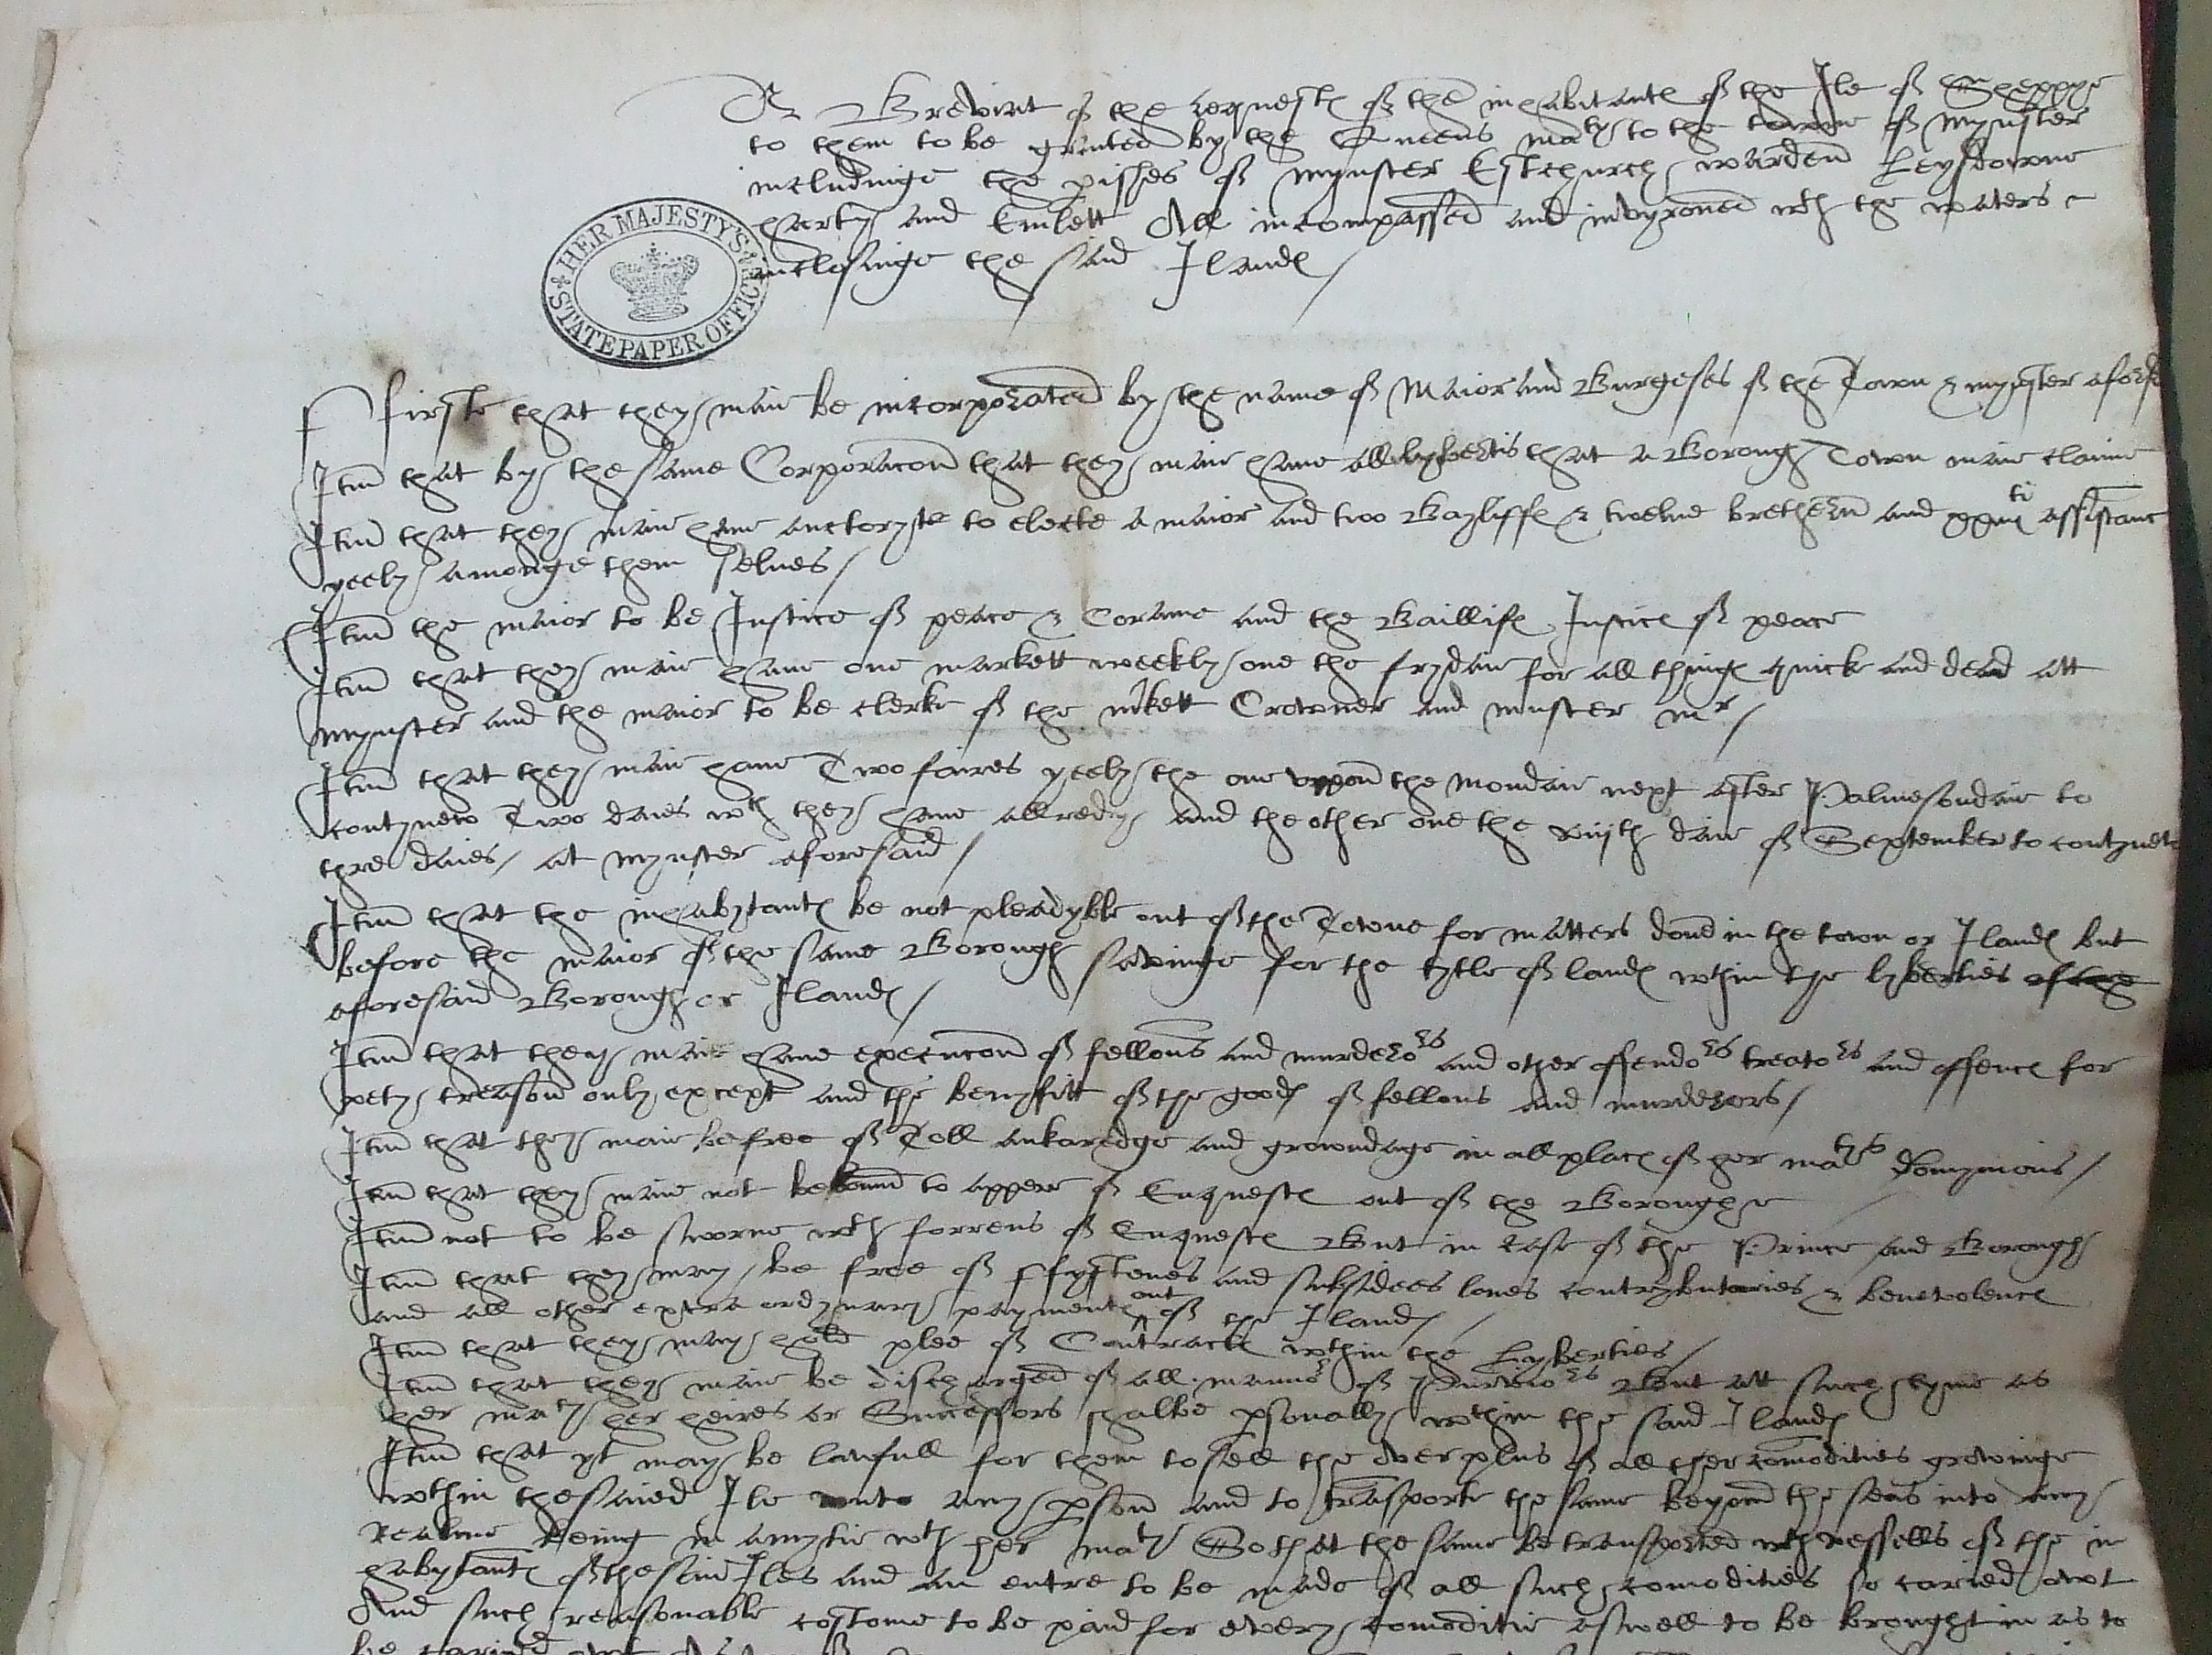 A Breviat of the requestes of the inhabitantes of the Ile of Sheppye
to them to be graunted by the Queens ma^tye to the towne of Mynster
includinge the pishes of Mynster Estchurch, Warden Leysdowne
Harty and Emlett All incompassed and invyroned wth the waters
inclosinge the said Ilandes /
HER MAJESTY'S STATE PAPER OFFICE
Firste that they maie be incorporated by the name of Maior and Burgeses of the Town & mynster afores
Itm that by the same Corporacon that they maie have all lyberties that a Borough Town maie claime
Itm that they maie have auctoryte to electe a maior and two Bayliffes & twelve bretheren and assistanc
yeely amonge them selves /
Itm the maior to be Justice of peace & Corame and the Baillifes Justices of peace
Itm that they maie have one markett weekly one the frydaie for all thinges quick and dead att
Mynster and the maior to be clerke of the mkett Crowner and muster mr /
Itm that they maie have Two faires yeely the one uppon the mondaie next after Palmesondaie to
contynew Two daies wth they have allredy and the other one the daie of September to contynew
thre daies / at Mynster aforesaid /
Itm that the inhabytantes be not pleadyble out of the Towne for matters done in the town or Ilandes but
before the maior of the same Borough savinge for the tytle of landes wthin the lyberties of the
aforesaid Borough or Ilandes /
Itm that they maie have execucon of fellons and murderors and other offendors treators and offences for
pety treason only except and the benyfitt of the goodes of fellons and murderors /
Itm that they maie be free of Toll ankaredge and growndage in all places of her ma^tys Domynions /
Itm that they maie not be bound to appere of Enquestes out of the Boroughe
Itm not to be sworne wth forrens of Enquestes But in case of the Prince and Borough
Itm that they may be free of ffyftenes and subsidees lones contrybutories & benevolences
and all other extra ordynary paymentes out of the Ilandes /
Itm that they may hold plee of Contractes wthin the Lyberties /
Itm that they maie be discharged of all manner of Purveiors But att such tyme as
her ma^ty her heires or Successors shalbe psonally wthin the said Ilandes
Itm that yt may be lawfull for them to sell the overplus of all ther comodities growinge
wthin the saied Ile unto any pson and to transporte the same beyond the seas into any
Realme being in amytie wth her ma^ty So that the same be transported wth vessells of the in
habytantes of the said Iles and an entre to be made of all such comodities so caried owt
And such reasonable costome to be paid for every comoditie aswell to be brought in as to
be caried owt